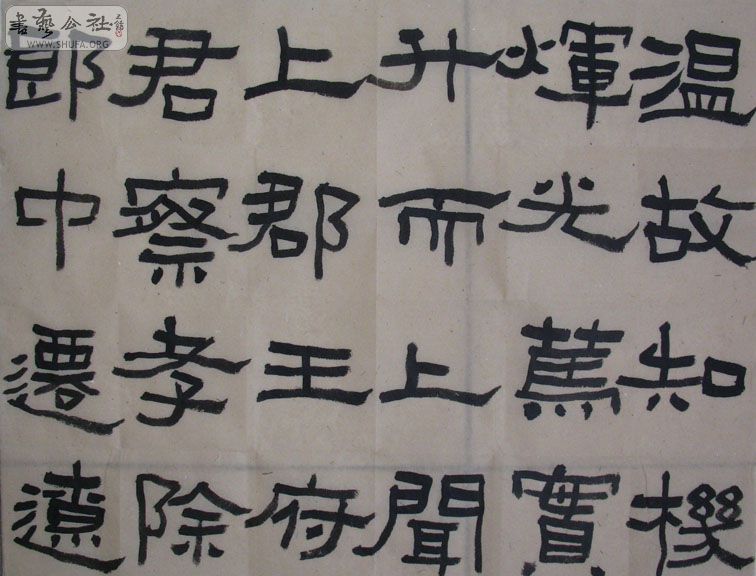 温故知機
煇光篤實
升而上聞
上郡王府
君察孝除
郎中遷遼
書藝公社
WWW.SHUFA.ORG